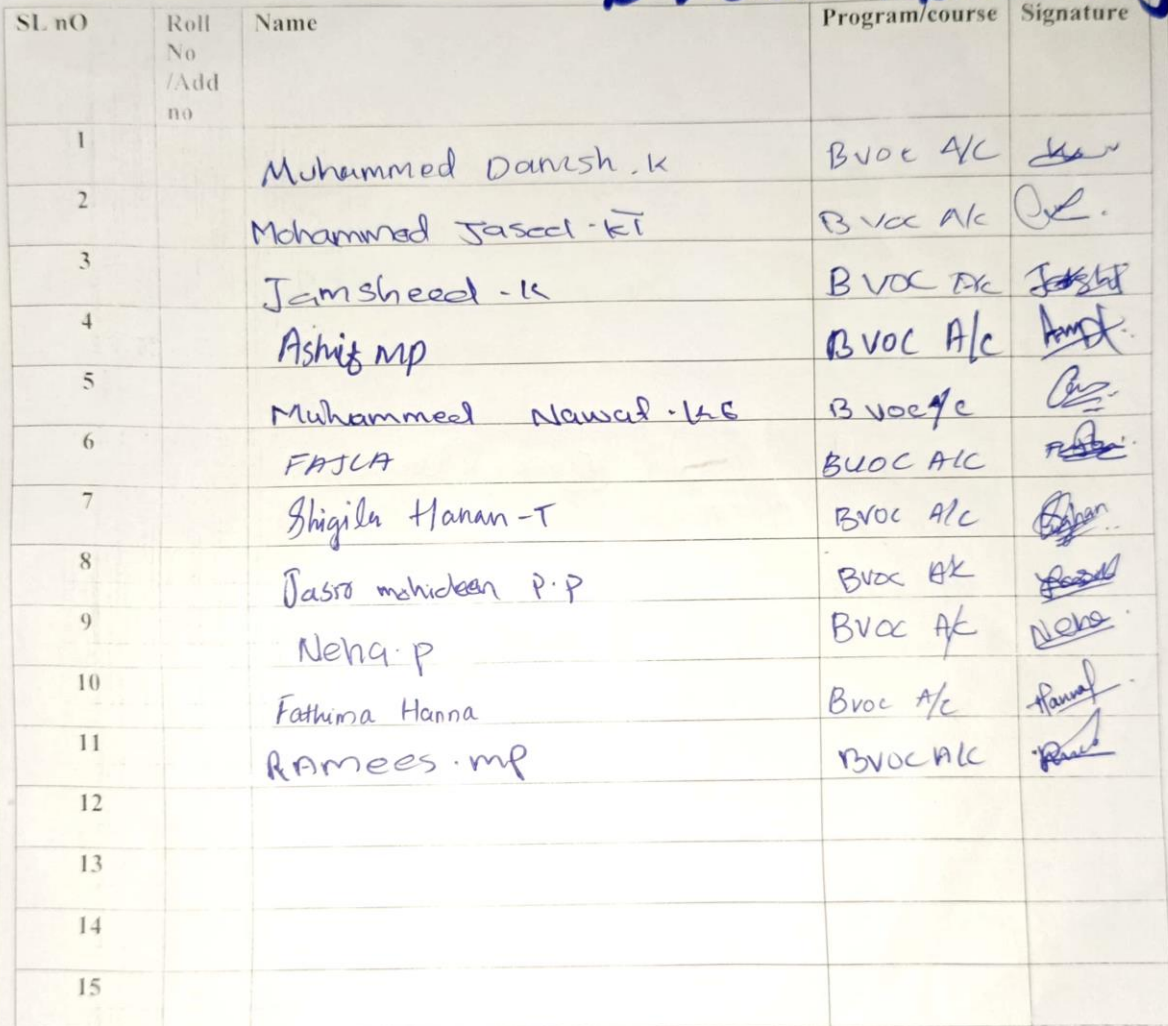 SL nO Roll No /Add no Name Program/course Signature
1 Muhammed Danish . K Bvoc A/C
2 Mohammad Jaseel - KT B Voc A/c
3 Jamsheed - K B VOC A/c
4 Ashif MP B VOC A/c
5 Muhammed Nawaf . B Voc A/c
6 FAJLA BVOC A/C
7 Shigila Hanan - T BVOC A/C
8 Jasir mohideen P.P Bvoc A/c
9 Neha . P BVOC A/C Neha
10 Fathima Hanna Bvoc A/c Hanna
11 RAmees . mp BVOC A/C
12
13
14
15